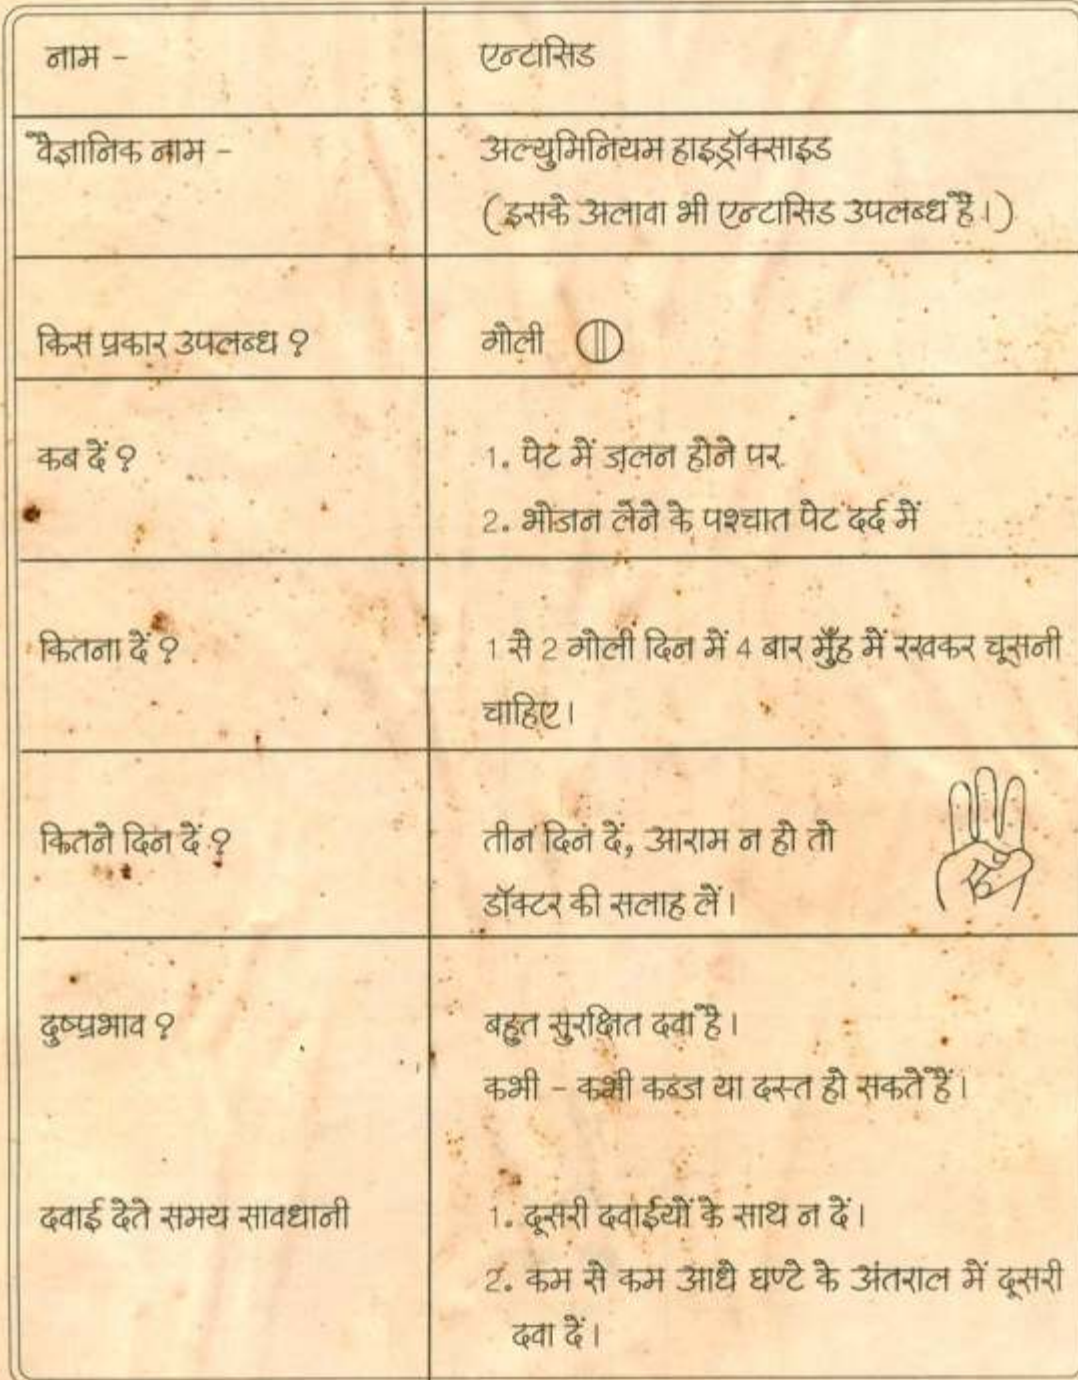 नाम -
एन्टासिड
वैज्ञानिक नाम -
अल्युमिनियम हाइड्रॉक्साइड
(इसके अलावा भी एन्टासिड उपलब्ध है।)
किस प्रकार उपलब्ध ?
गोली
कब दें ?
1. पेट में जलन होने पर
2. भोजन लेने के पश्चात पेट दर्द में
कितना दें ?
1 से 2 गोली दिन में 4 बार मुँह में रखकर चूसनी
चाहिए।
कितने दिन दें ?
तीन दिन दें, आराम न हो तो
डॉक्टर की सलाह लें।
दुष्प्रभाव ?
बहुत सुरक्षित दवा है।
कभी - कभी कब्ज या दस्त हो सकते हैं।
दवाई देते समय सावधानी
1. दूसरी दवाईयों के साथ न दें।
2. कम से कम आधे घण्टे के अंतराल में दूसरी
दवा दें।